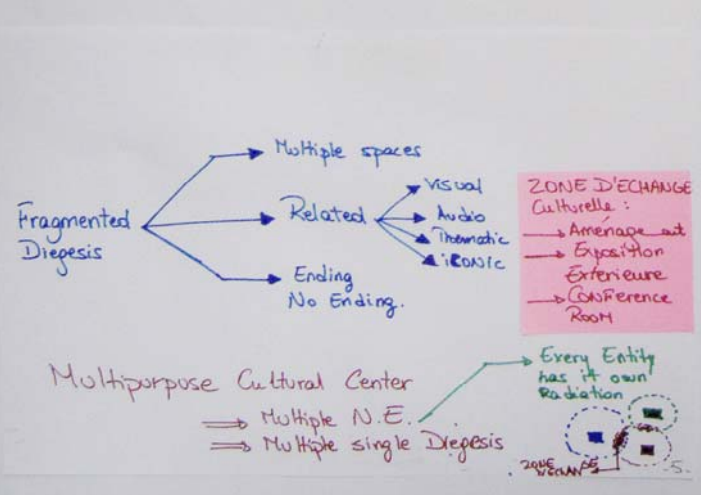 Multiple spaces
Fragmented
Diegesis
Related
Visual
Audio
Thematic
iCONIC
Ending
No Ending.
ZONE D'ECHANGE
Culturelle :
Aménage
Exposition
Exterieure
CONFerence
ROOM
Multipurpose Cultural Center
Multiple N.E.
Multiple single Diegesis
Every Entity
has it own
Radiation
ZONE
5.